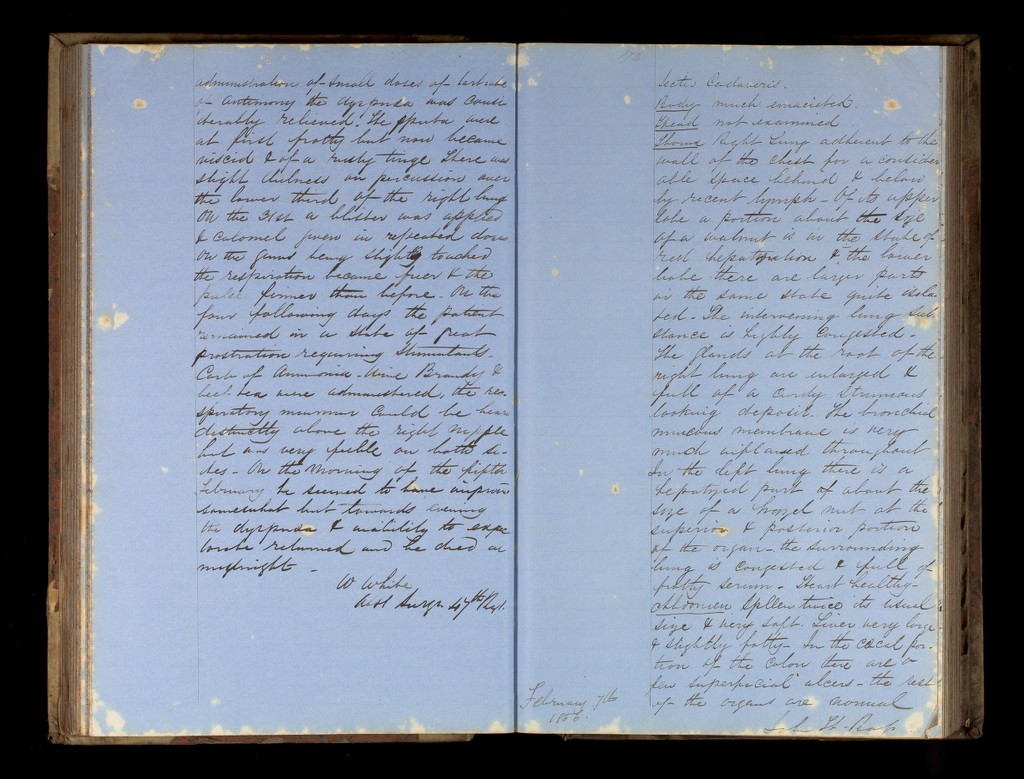 administration of small doses of tartrate
of antimony the dyspnœa was consi
derably relieved. The sputa were
at first frothy but now became
viscid & of a rusty tinge There was
slight dulness on percussion over
the lower third of the right lung
On the 31st a blister was applied
& calomel given in repeated doses
On the gums being slightly touched
the respiration became freer & the
pulse firmer than before. On the
four following days the patient
remained in a state of great
prostration requiring Stimulants.
Carb of Ammonia. Wine Brandy &
beef tea were administered, the res
piratory murmur could be hear
distinctly above the right nipple
but was very feeble on both si-
des - On the morning of the fifth
February he seemed to have improv
somewhat but towards evening
the dyspnœa & inability to expec
torate returned and he died at
midnight -
W White
Asst Surgn 47th Regt.
173
Sectio Cadaveris.
Body much emaciated.
Head not examined
Thorax Right Lung adherent to the
wall of the chest for a consider
able space behind & below
by recent lymph - Of its upper
lobe a portion about the size
of a walnut is in the state of
red hepatization & the lower
lobe there are larger parts
in the same state quite isola
ted - The intervening lung sub
stance is highly congested.
The glands at the root of the
right lung are enlarged &
full of a curdy strumous
looking deposit. The bronchial
mucous membrane is very
much inflamed throughout
In the left lung there is a
hepatized part of about the
size of a hazel nut at the
superior & posterior portion
of the organ - the surrounding
lung is congested & full of
frothy serum - Heart healthy -
Abdomen Spleen twice its usual
size & very soft. Liver very large
& slightly fatty - In the cœcal por-
tion of the colon there are a
few superficial ulcers - the rest
of the organs are normal
February 7th
1856.